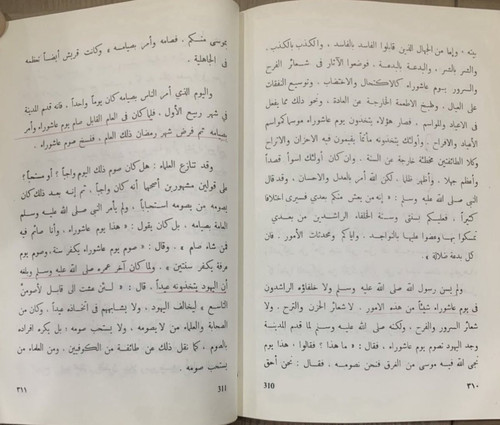 بيته ، وإما من الجهال الذين قابلوا الفاسد بالفاسد ، والكذب بالكذب ،
والشر بالشر ، والبدعة بالبدعة ، فوضعوا الآثار فى شعائر الفرح
والسرور يوم عاشوراء كالاكتحال والاختضاب ، وتوسيع النفقات
على العيال ، وطبخ الاطعمة الخارجة عن العادة ، ونحو ذلك مما يفعل
فى الاعياد والمواسم ، فصار هؤلاء يتخذون يوم عاشوراء موسما كمواسم
الأعياد والأفراح ، وأولئك يتخذونه مأتما يقيمون فيه الاحزان والاتراح
وكلا الطائفتين مخطئة خارجة عن السنة ، وان كان أولئك أسوأ قصداً
وأعظم جهلا ، وأظهر ظلما ، لكن الله أمر بالعدل والاحسان ، وقد قال
النبى صلى الله عليه وسلم : « إنه من يعش منكم بعدي فسيرى اختلافا
كثيراً ، فعليكم بسنتى وسنة الخلفاء الراشدين من بعدي ،
تمسكوا بها وعضوا عليها بالنواجذ ، وإياكم ومحدثات الأمور ، فان
كل بدعة ضلالة » .
ولم يسن رسول الله صلى الله عليه وسلم ولا خلفاؤه الراشدون
فى يوم عاشوراء شيئاً من هذه الامور ، لا شعائر الحزن والترح ، ولا
شعائر السرور والفرح ، ولكنه صلى الله عليه وسلم لما قدم المدينة
وجد اليهود تصوم يوم عاشوراء ، فقال : « ما هذا ؟ فقالوا : هذا يوم
نجى الله فيه موسى من الغرق فنحن نصومه ، فقال : نحن أحق
٣١٠
310
بموسى منكم . فصامه وأمر بصيامه » وكانت قريش أيضاً تعظمه
فى الجاهلية .
واليوم الذي أمر الناس بصيامه كان يوماً واحداً ، فانه قدم المدينة
فى شهر ربيع الأول ، فلما كان فى العام القابل صام يوم عاشوراء وأمر
بصيامه ثم فرض شهر رمضان ذلك العام ، فنسخ صوم عاشوراء .
وقد تنازع العلماء : هل كان صوم ذلك اليوم واجباً ؟ أو مستحباً ؟
على قولين مشهورين أصحهما أنه كان واجباً ، ثم إنه بعد ذلك كان
يصومه من يصومه استحباباً ، ولم يأمر النبى صلى الله عليه وسلم
العامة بصيامه ، بل كان يقول : « هذا يوم عاشوراء ، وأنا صائم فيه
فمن شاء صام » . وقال : « صوم يوم عاشوراء يكفر سنة ، وصوم يوم
عرفة يكفر سنتين » . ولما كان آخر عمره صلى الله عليه وسلم وبلغه
أن اليهود يتخذونه عيداً ، قال : « لئن عشت الى قابل لأصومن
التاسع » ليخالف اليهود ، ولا يشابههم فى اتخاذه عيداً ، وكان من
الصحابة والعلماء من لا يصومه ، ولا يستحب صومه ؛ بل يكره افراده
بالصوم ، كما نقل ذلك عن طائفة من الكوفيين ، ومن العلماء من
يستحب صومه .
٣١١
311